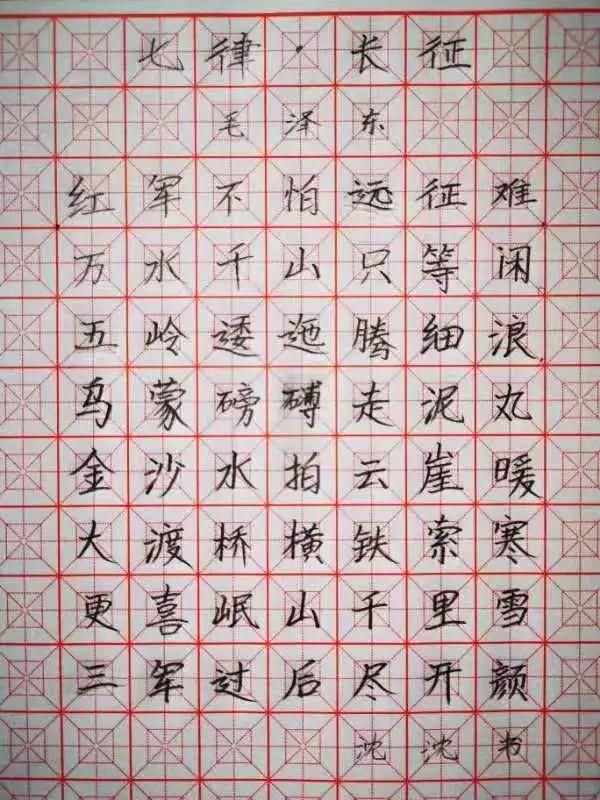 七律·长征
毛泽东
红军不怕远征难
万水千山只等闲
五岭逶迤腾细浪
乌蒙磅礴走泥丸
金沙水拍云崖暖
大渡桥横铁索寒
更喜岷山千里雪
三军过后尽开颜
沈沈书